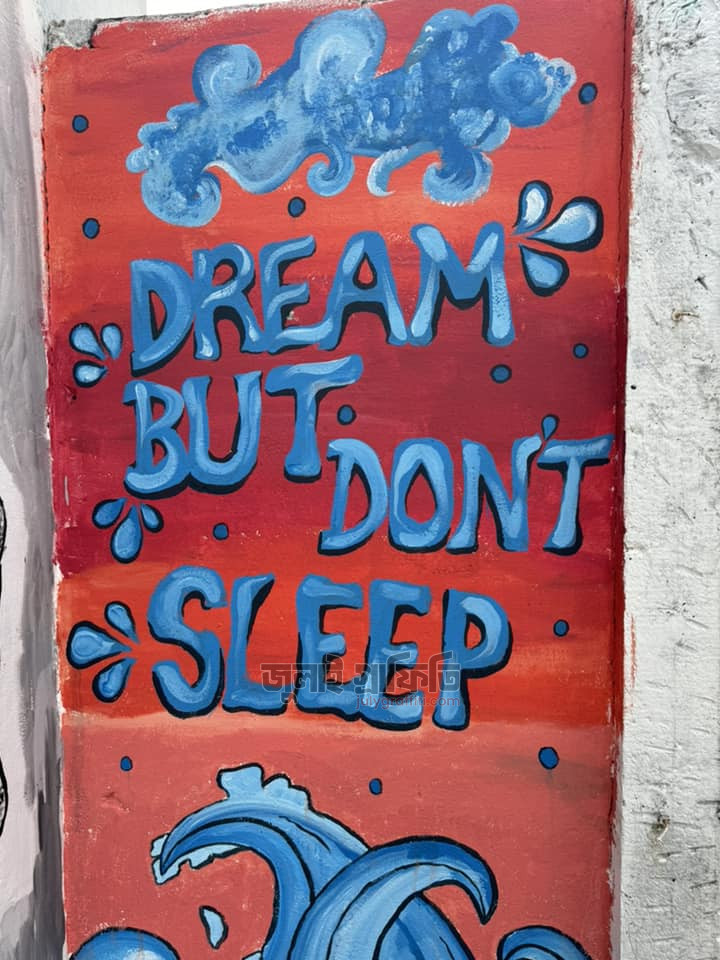 DREAM
BUT
DON'T
SLEEP
জুলাই গ্রাফিতি
julygraffiti.com